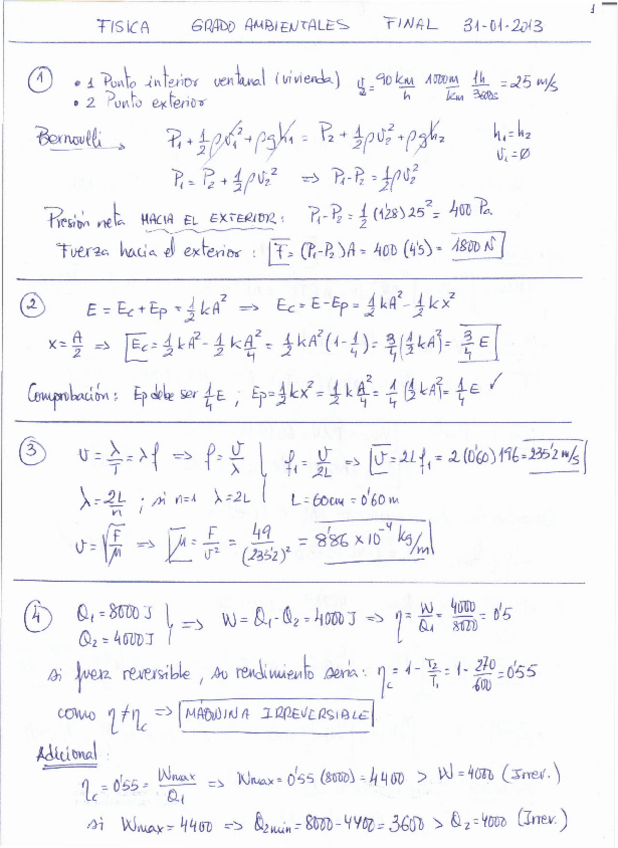 1
FISICA GRADO AMBIENTALES FINAL 31-01-2013
① • 1 Punto interior ventanal (vivienda) v₂ = 90 km/h 1000m/km 1h/3600s = 25 m/s
• 2 Punto exterior
Bernoulli → P₁ + 1/2 ρv₁² + ρgh₁ = P₂ + 1/2 ρv₂² + ρgh₂ h₁=h₂
v₁=Ø
P₁ = P₂ + 1/2 ρv₂² ⇒ P₁-P₂ = 1/2 ρv₂²
Presión neta HACIA EL EXTERIOR: P₁-P₂ = 1/2 (1'28) 25² = 400 Pa.
Fuerza hacia el exterior: F = (P₁-P₂)A = 400 (4'5) = 1800 N
② E = Ec + Ep = 1/2 kA² ⇒ Ec = E - Ep = 1/2 kA² - 1/2 kx²
x = A/2 ⇒ Ec = 1/2 kA² - 1/2 k A²/4 = 1/2 kA² (1 - 1/4) = 3/4 (1/2 kA²) = 3/4 E
Comprobación: Ep debe ser 1/4 E ; Ep = 1/2 kx² = 1/2 k A²/4 = 1/4 (1/2 kA²) = 1/4 E ✓
③ v = λ/T = λf ⇒ f = v/λ | f₁ = v/2L ⇒ v = 2L f₁ = 2 (0'60) 196 = 235'2 m/s
λ = 2L/n ; si n=1 λ=2L | L = 60cm = 0'60 m
v = √F/μ ⇒ μ = F/v² = 49/(235'2)² = 8'86 × 10⁻⁴ kg/m
④ Q₁ = 8000 J
Q₂ = 4000 J ⇒ W = Q₁ - Q₂ = 4000 J ⇒ η = W/Q₁ = 4000/8000 = 0'5
si fuera reversible, su rendimiento sería: ηc = 1 - T₂/T₁ = 1 - 270/600 = 0'55
como η ≠ ηc ⇒ MÁQUINA IRREVERSIBLE
Adicional:
ηc = 0'55 = Wmax/Q₁ ⇒ Wmax = 0'55 (8000) = 4400 > W = 4000 (Irrev.)
si Wmax = 4400 ⇒ Q₂min = 8000 - 4400 = 3600 > Q₂ = 4000 (Irrev.)